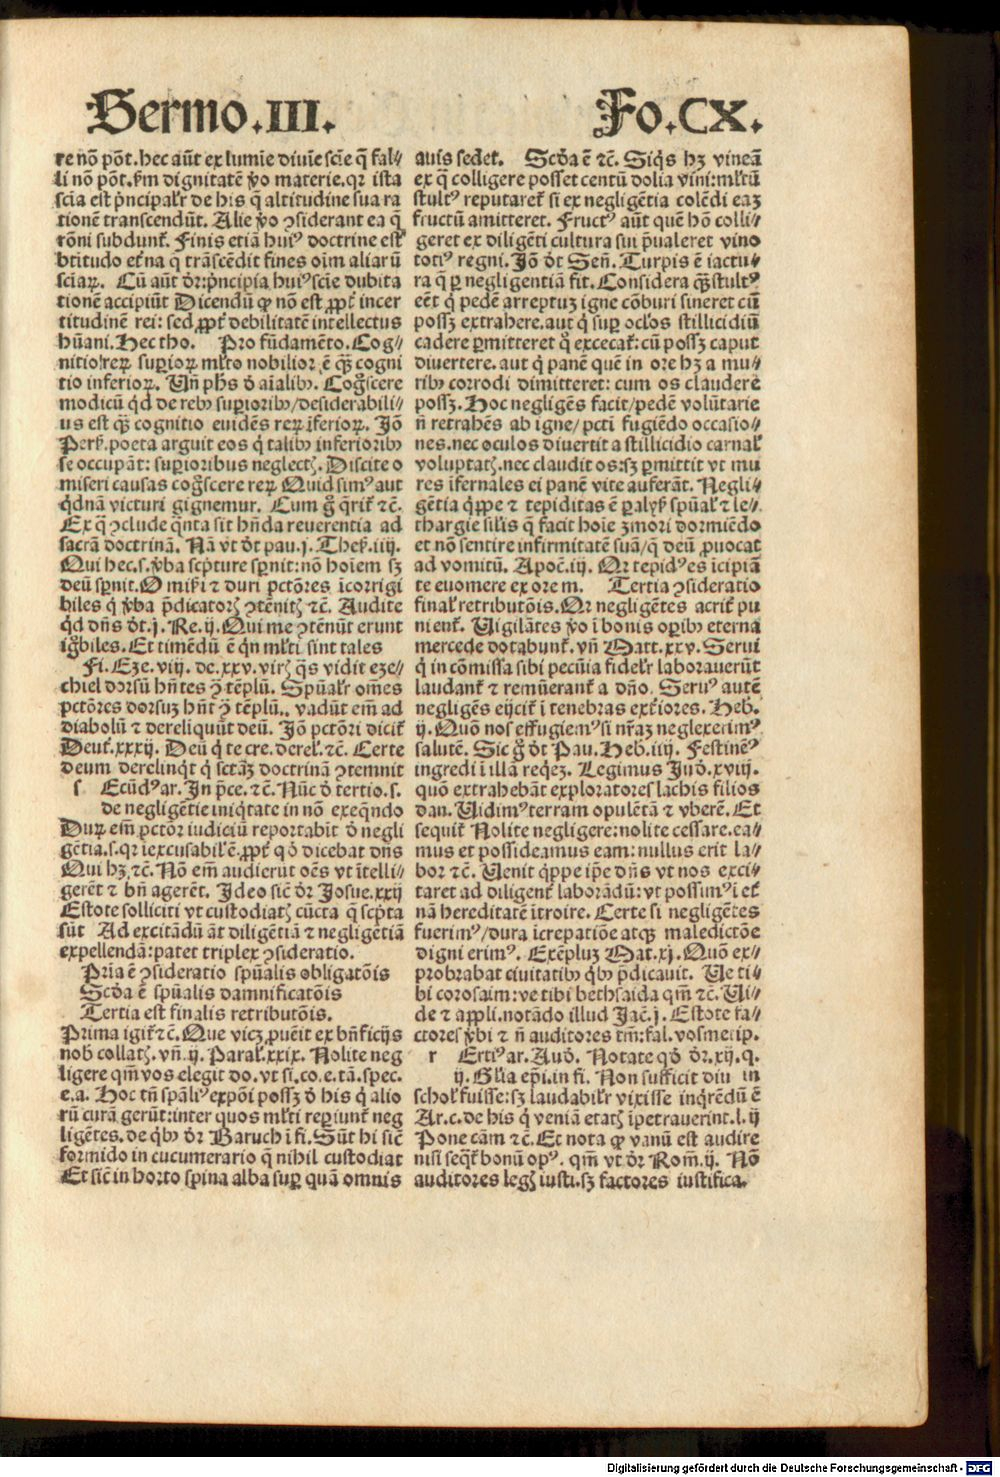 Sermo.III. Fo.CX.
re nō pōt. hec aūt ex lumīe diuīe scīe q̄ fal⸗
li nō pōt. ẜm dignitatē ṽo materie. qꝛ ista
scīa est pͥncipalr̄ de his q̄ altitudine sua ra
tionē transcendūt. Alie ṽo ꝯsiderant ea q̄
rōni subdunt᷑. Finis etiā huiꝰ doctrine est
btitudo etͥna q̄ trāscēdit fines oīm aliarū
sciaꝝ. Cū aūt dr̄: pͥncipia huiꝰ scīe dubita
tionē accipiūt Dicendū ꝙ nō est ꝓpt᷑ incer
titudinē rei: sed ꝓpt᷑ debilitatē intellectus
hūani. Hec tho. Pro fūdamēto. Cog⸗
nitio reꝝ suꝑioꝝ ml̄to nobilior ē q̄ꝫ cogni
tio inferioꝝ. Vn̄ ph̄s ď aīalibꝫ. Cogͦscere
modicū qͥd de rebꝫ suꝑioribꝫ/desiderabili⸗
us est q̄ꝫ cognitio euidēs reꝝ īferioꝝ. Iō
Pers̄. poeta arguit eos qͥ talibꝫ inferioribꝫ
se occupāt: suꝑioribus neglectꝭ. Discite o
miseri causas cogͦscere reꝝ Quid simꝰ aut
qͥdnā victuri gignemur. Cum gͦ qͥrit᷑ ⁊c̄.
Ex q̄ ꝯclude qͣnta sit hn̄da reuerentia ad
sacrā doctrinā. Nā vt ďt pau. j. Thes̄. iiij.
Qui hec. s. ṽba scpͥture spernit: nō hoīem sꝫ
deū spͥnit. O misͥi ⁊ duri pctōres īcorrigi
biles qͥ ṽba p̄dicatorꝭ ꝯtēnitꝭ ⁊c̄. Audite
qͥd dn̄s ďt. j. Re. ij. Qui me ꝯtēnūt erunt
igͦbiles. Et timēdū ē qͥn ml̄ti sint tales
Fi. Eze. viij. de. xxv. virꝭ q̄s vidit eze⸗
chiel dorsū hn̄tes ꝯͣ tēplū. Spūalr̄ om̄es
pctōres dorsuꝫ hn̄t ꝯͣ tēplū. vadūt em̄ ad
diabolū ⁊ dereliquūt deū. Iō pctōri dicit᷑
Deut᷑. xxxij. Deū qͥ te cre. derel̄. ⁊c̄. Certe
deum derelinqͥt qͥ sctāꝫ doctrinā ꝯtemnit
s Ecūdꝰ ar. In pͥce. ⁊c̄. Nūc ď tertio. s.
de negligētie iniqͥtate in nō exeqn̄do
Duꝝ em̄ pctōꝝ iudiciū reportabit ď negli
gētia. s. qꝛ īexcusabil̄ ē. ꝓpt᷑ qď dicebat dn̄s
Qui hꝫ ⁊c̄. Nō em̄ audierūt oēs vt ītelli⸗
gerēt ⁊ bn̄ agerēt. Ideo sic̄ dr̄ Josue. xxij
Estote solliciti vt custodiatꝭ cūcta q̄ scpͥta
sūt Ad excitādū āt diligētiā ⁊ negligētiā
expellendā: patet triplex ꝯsideratio.
Pri̅a ē ꝯsideratio spūalis obligatōis
Scďa ē spūalis damnificatōis
Tertia est finalis retributōis.
Prima igit᷑ ⁊c̄. Que vicꝫ ꝓuēit ex bn̄ficijs
nob̄ collatꝭ. vn̄. ij. Paral̄. xxix. Nolite neg
ligere qm̄ vos elegit do. vt si. co. e. tā. spec.
e. a. Hoc tn̄ spāliꝰ expōi possꝫ ď his qͥ alio
rū curā gerūt: inter quos ml̄ti reꝑiunt᷑ neg
ligētes. de qͥbꝫ dr̄ Baruch ī fi. Sūt hi sic̄
formido in cucumerario q̄ nihil custodiat
Et sic̄ in horto spina alba suꝑ quā omnis
auis sedet. Scďa ē ⁊c̄. Siqͥs hꝫ vineā
ex q̄ colligere posset centū dolia vini: ml̄tū
stultꝰ reputaret᷑ si ex negligētia colēdi eaꝫ
fructū amitteret. Fructꝰ aūt quē hō colli⸗
geret ex diligēti cultura sui p̄ualeret vino
totiꝰ regni. Iō ďt Sen̄. Turpis ē iactu⸗
ra q̄ ꝑ negligentiā fit. Considera qͣ̄ꝫ stultꝰ
eēt qͥ pedē arreptuꝫ igne cōburi sineret cū
possꝫ extrahere. aut qͥ suꝑ ocl̄os stillicidiū
cadere ꝑmitteret qͦ excecar̄: cū possꝫ caput
diuertere. aut qͥ panē quē in ore hꝫ a mu⸗
ribꝫ corrodi dimitteret: cum os claudere
possꝫ. Hoc negligēs facit/pedē volūtarie
n̄ retrahēs ab igne/pcti fugiēdo occasio⸗
nes. nec oculos diuertit a stillicidio carnal̄
voluptatꝭ. nec claudit os: sꝫ ꝑmittit vt mu
res īfernales ei panē vite auferāt. Negli⸗
gētia qͥppe ⁊ tepiditas ē ꝑalys̄ spūal̄ ⁊ le⸗
thargie sil̄is q̄ facit hoīe ꝫmori dormiēdo
et nō sentire infirmitatē suā/q̄ deū ꝓuocat
ad vomitū. Apoc̄. iij. Qꝛ tepidꝰ es īcipiā
te euomere ex ore m. Tertia ꝯsideratio
final̄ retributōis. Qꝛ negligētes acrit᷑ pu
nient᷑. Vigilātes ṽo ī bonis oꝑibꝫ eterna
mercede dotabunt᷑. vn̄ Matt. xxv. Serui
qͥ in cōmissa sibi pecūia fidelr̄ laborauerūt
laudant᷑ ⁊ remūerant᷑ a dn̄o. Seruꝰ autē
negligēs eijcit᷑ ī tenebras extͥiores. Heb.
ij. Quō nos effugiemꝰ si nr̄aꝫ neglexerimꝰ
salutē. Sic gͦ ďt Pau. Heb. iiij. Festinēꝰ
ingredi ī illā reqͥeꝫ. Legimus Iuď. xviij.
quō extrahebāt exploratores lachis filios
dan. Vidimꝰ terram opulētā ⁊ vberē. Et
sequit᷑ Nolite negligere: nolite cessare. ea⸗
mus et possideamus eam: nullus erit la⸗
bor ⁊c̄. Venit qͥppe ip̄e dn̄s vt nos exci⸗
taret ad diligent᷑ laborādū: vt possimꝰ ī et᷑
nā hereditatē ītroire. Certe si negligētes
fuerimꝰ/dura īcrepatiōe atqꝫ maledictōe
digni erimꝰ. Exēpluꝫ Mat. xj. Quō ex⸗
probrabat ciuitatibꝫ qͥbꝫ p̄dicauit. Ve ti⸗
bi corosaim: ve tibi bethsaida qm̄ ⁊c̄. Vi⸗
de ⁊ appli. notādo illud Jac̄. j. Estote fa⸗
ctores ṽbi ⁊ n̄ auditores tm̄: fal. vosmetip.
r Ertiꝰ ar. Auď. Notate qď dr̄. xij. q.
ij. Gl̄ia ep̄i. in fi. Non sufficit diu in
schol̄ fuisse: sꝫ laudabilr̄ vixisse inqͥrēdū ē
Ar. c. de his qͥ veniā etatꝭ īpetrauerint. l. ij
Pone cām ⁊c̄. Et nota ꝙ vanū est audire
nisi seqͣt᷑ bonū opꝰ. qm̄ vt dr̄ Rom̄. ij. Nō
auditores legꝭ iusti. sꝫ factores iustifica.
Digitalisierung gefördert durch die Deutsche Forschungsgemeinschaft - DFG